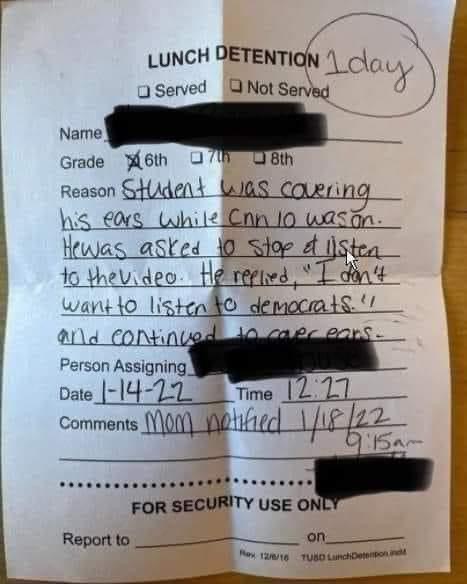 LUNCH DETENTION 1 day
☐ Served ☐ Not Served
Name
Grade ☒ 6th ☐ 7th ☐ 8th
Reason Student was covering
his ears while Cnn 10 was on.
He was asked to stop & listen
to the video. He replied, "I don't
want to listen to democrats."
and continued to cover ears-
Person Assigning
Date 1-14-22 Time 12:27
Comments Mom notified 1/18/22
9:15am
FOR SECURITY USE ONLY
Report to on
Rev. 12/6/16 TUSD LunchDetention.indd